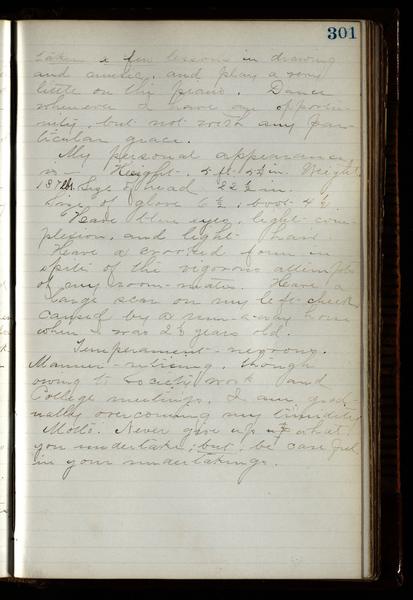 301
taken a few lessons in drawing
and music, and play a very
little on the piano. Dance
whenever I have an opportu-
nity, but not with any par-
ticular grace.
My personal appearance
is — Height, 5 ft. in. Weight
Size of head 22 in.
Size of glove 6 , boot 4
Have blue eyes, light com-
plexion, and light hair.
Have a crooked form in
spite of the vigorous attempts
of my room-mates. Have a
large scar on my left cheek
caused by a run-a-way horse
when I was 2½ years old.
Temperament - nervous.
Manner - retiring, though
owing to Society work and
College meetings, I am grad-
ually overcoming my timidity.
Motto. Never give up what
you undertake; but be careful
in your undertakings.